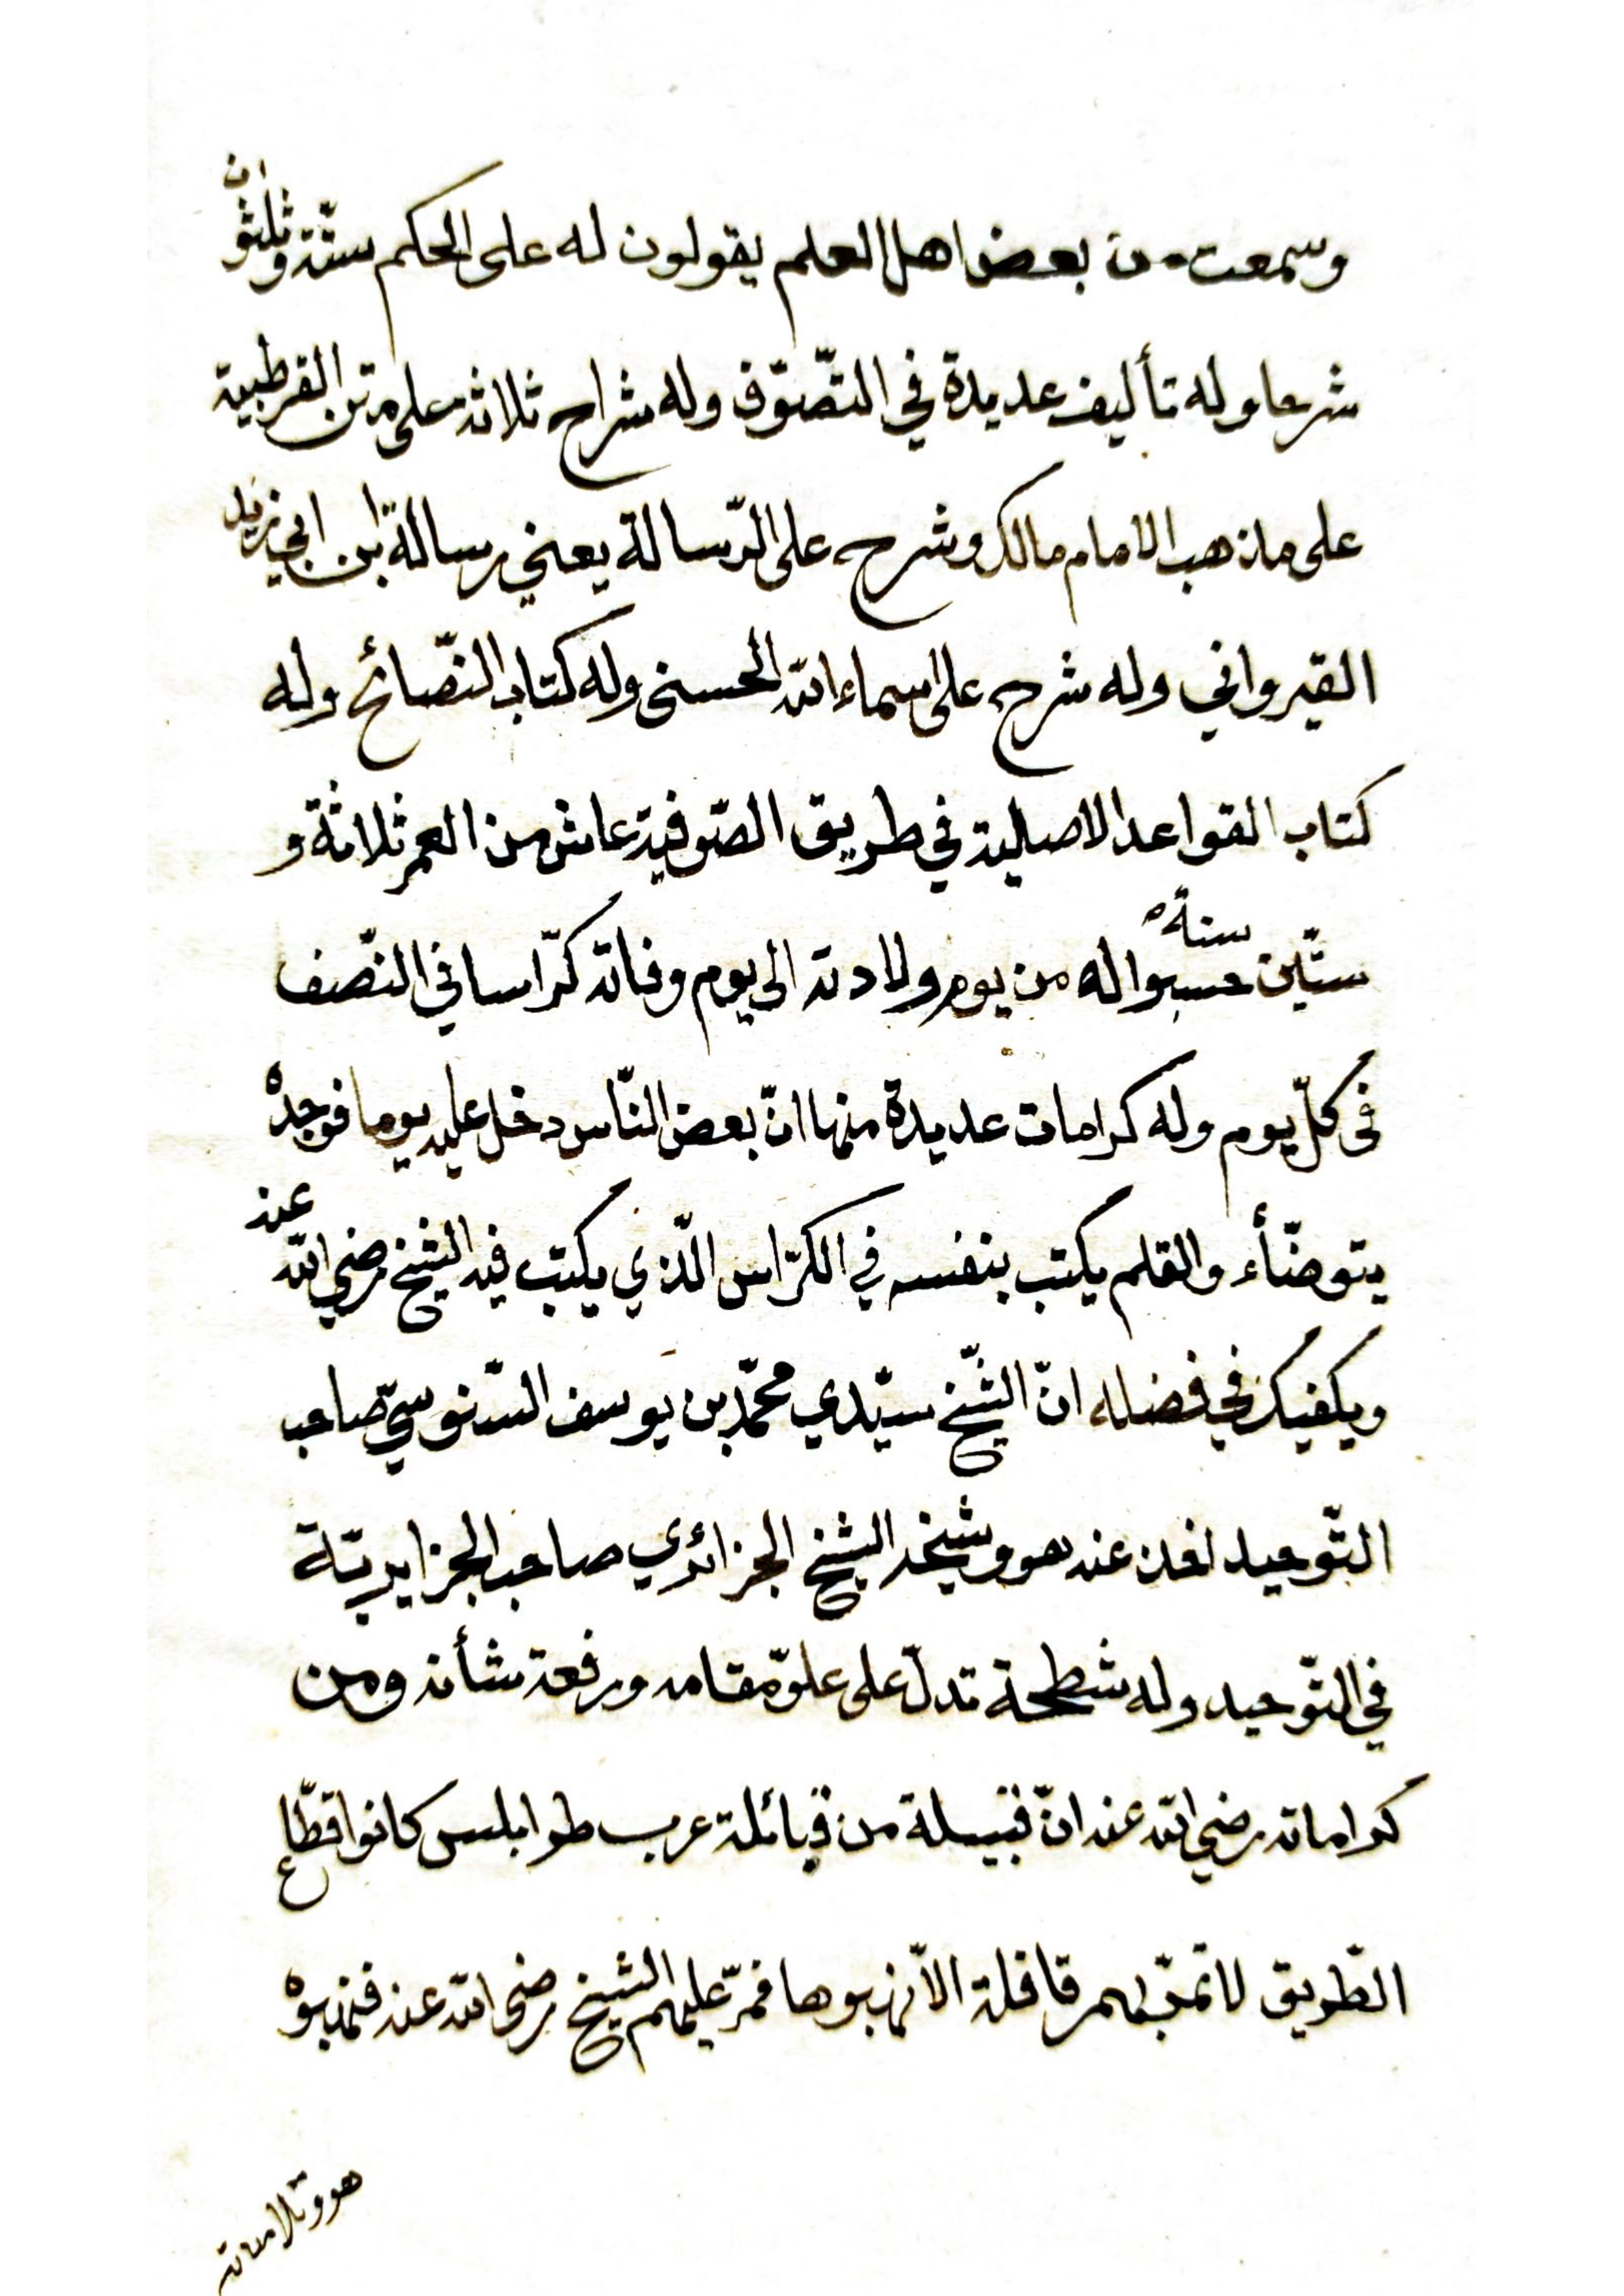 وسمعت من بعض اهل العلم يقولون له على الحكم ستّة وثلثون
شرحا وله تأليف عديدة في التصّوّف وله شراح ثلاثه على متن القرطبية
على مذهب الامام مالك وشرح على الرّسالة يعني رسالة ابن ابي زيد
القيرواني وله شرح على اسماء الله الحسنى وله كتاب النصّائح وله
كتاب القواعد الاصلية في طريق الصّوفية عاش من العمر ثلاثة و
ستّين سنة حسبوا له من يوم ولادته الى يوم وفاته كرّاسا في النصّف
في كلّ يوم وله كرامات عديدة منها انّ بعض النّاس دخل عليه يوما فوجده
يتوضّأء والقلم يكتب بنفسه في الكرّاس الّذي يكتب فيه الشيخ رضي الله عنه
ويكفيك في فضله انّ الشّيخ سيّدي محمّد بن يوسف السّنوسيّ صاحب
التّوحيد اخذ عنه هو وشيخه الشيخ الجزائري صاحب الجزايريّة
في التّوحيد وله شطحة تدلّ على علوّ مقامه ورفعة شأنه ومن
كراماته رضي الله عنه انّ قبيلة من قبائلة عرب طرابلس كانوا قطّاع
الطّريق لا تمرّ بهم قافلة الاّ نهبوها فمرّ عليهم الشيخ رضي الله عنه فنهبوه
هو وتلامذته